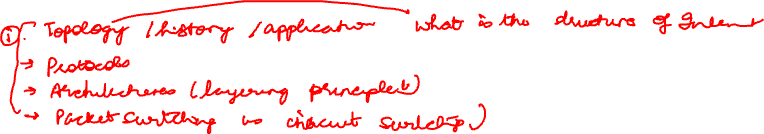 ① Topology / history / application what is the structure of Internet
→ Protocols
→ Architectures (layering principles)
→ Packet switching vs circuit switching)